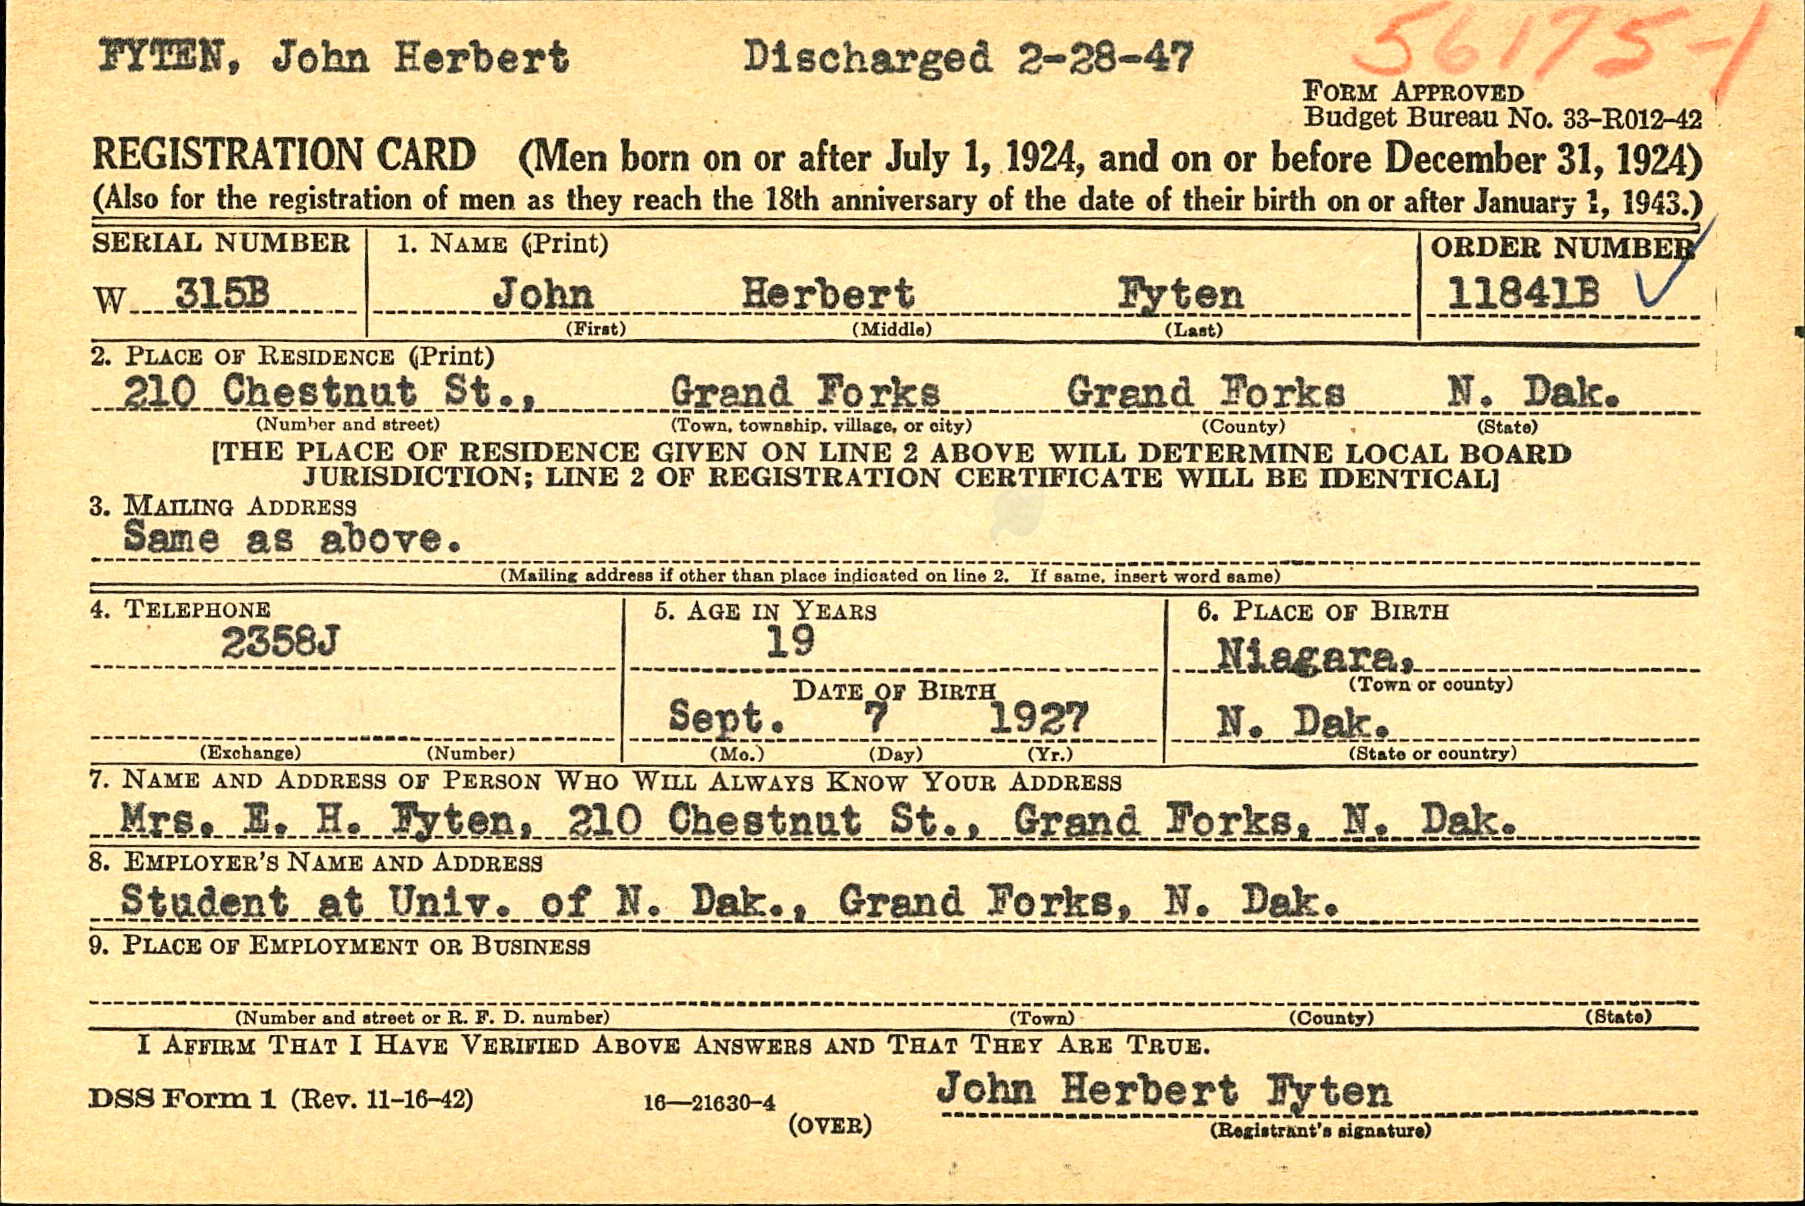 FYTEN, John Herbert Discharged 2-28-47 56175-1
FORM APPROVED
Budget Bureau No. 33-R012-42
REGISTRATION CARD (Men born on or after July 1, 1924, and on or before December 31, 1924)
(Also for the registration of men as they reach the 18th anniversary of the date of their birth on or after January 1, 1943.)
SERIAL NUMBER 1. NAME (Print) ORDER NUMBER
W 315B John Herbert Fyten 11841B ✓
(First) (Middle) (Last)
2. PLACE OF RESIDENCE (Print)
210 Chestnut St., Grand Forks Grand Forks N. Dak.
(Number and street) (Town, township, village, or city) (County) (State)
[THE PLACE OF RESIDENCE GIVEN ON LINE 2 ABOVE WILL DETERMINE LOCAL BOARD
JURISDICTION; LINE 2 OF REGISTRATION CERTIFICATE WILL BE IDENTICAL]
3. MAILING ADDRESS
Same as above.
(Mailing address if other than place indicated on line 2. If same, insert word same)
4. TELEPHONE 5. AGE IN YEARS 6. PLACE OF BIRTH
2358J 19 Niagara,
(Town or county)
DATE OF BIRTH
Sept. 7 1927 N. Dak.
(Exchange) (Number) (Mo.) (Day) (Yr.) (State or country)
7. NAME AND ADDRESS OF PERSON WHO WILL ALWAYS KNOW YOUR ADDRESS
Mrs. E. H. Fyten, 210 Chestnut St., Grand Forks, N. Dak.
8. EMPLOYER'S NAME AND ADDRESS
Student at Univ. of N. Dak., Grand Forks, N. Dak.
9. PLACE OF EMPLOYMENT OR BUSINESS
(Number and street or R. F. D. number) (Town) (County) (State)
I AFFIRM THAT I HAVE VERIFIED ABOVE ANSWERS AND THAT THEY ARE TRUE.
John Herbert Fyten
DSS Form 1 (Rev. 11-16-42) 16—21630-4
(OVER) (Registrant's signature)